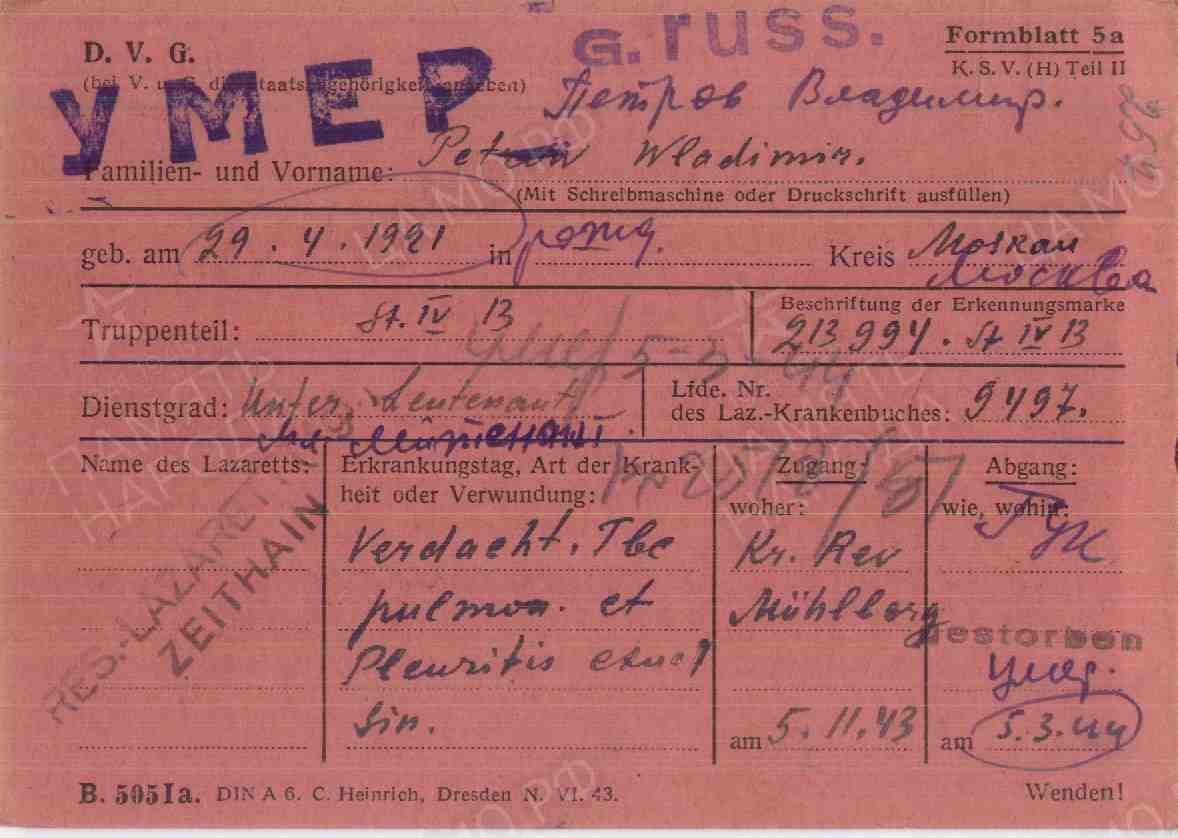 G. russ.
Formblatt 5a
D. V. G.
K. S. V. (H) Teil II
(bei V. u. G. die Staatsangehörigkeit angeben)
УМЕР
Петров Владимир.
Familien- und Vorname: Wladimir.
(Mit Schreibmaschine oder Druckschrift ausfüllen)
geb. am 29. 4. 1921 in Kreis Moskau
Москва
Truppenteil: St. IV B
Beschriftung der Erkennungsmarke
213 994. St IV B
умер 5-3-44
Dienstgrad: Unter Leutenant
Lfde. Nr.
des Laz.-Krankenbuches: 9497.
Мл. лейтенант
Name des Lazaretts:
RES.-LAZARETT
ZEITHAIN
Erkrankungstag, Art der Krank-
heit oder Verwundung:
Verdacht. Tbc
pulmon. et
Pleuritis exud
sin.
Zugang:
woher:
Kr. Rev
Mühlberg
am 5. 11. 43
Abgang:
wie, wohin:
Gestorben
умер.
am 5. 3. 44
B. 5051a. DIN A 6. C. Heinrich, Dresden N. VI. 43.
Wenden!
ПАМЯТЬ НАРОДА
ЦА МО РФ